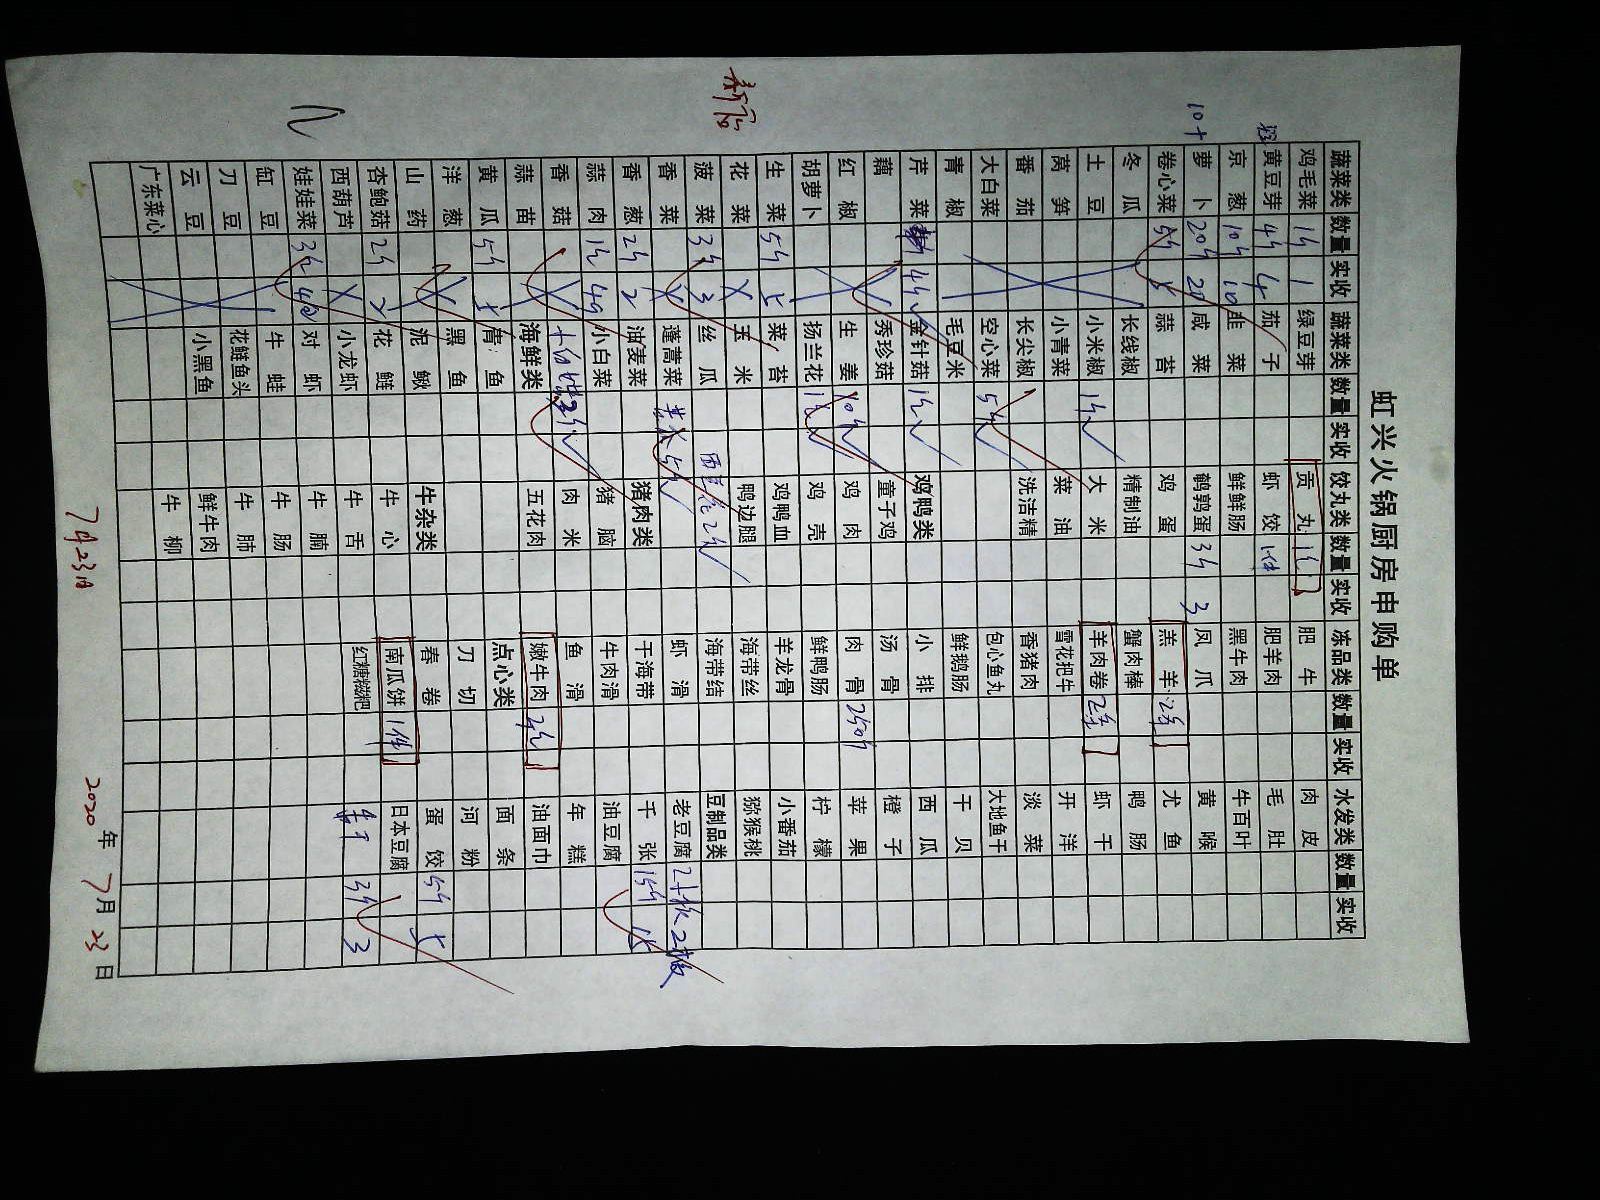 新店
虹兴火锅厨房申购单
蔬菜类 数量 实收 蔬菜类 数量 实收 饺丸类 数量 实收 冻品类 数量 实收 水发类 数量 实收
鸡毛菜 1斤 1 绿豆芽 贡丸 肥牛 肉皮
黄豆芽 4斤 4 茄子 虾饺 1件 肥羊肉 毛肚
京葱 10斤 10 韭菜 鲜鲜肠 黑牛肉 牛百叶
10个 萝卜 20斤 20 咸菜 鹌鹑蛋 3斤 3 凤爪 黄喉
卷心菜 5斤 5 蒜苔 鸡蛋 羔羊 2箱 尤鱼
冬瓜 长线椒 精制油 蟹肉棒 鸭肠
土豆 小米椒 1斤 大米 羊肉卷 2箱 虾干
莴笋 小青菜 菜油 雪花把牛 开洋
番茄 长尖椒 洗洁精 香猪肉 淡菜
大白菜 空心菜 5斤 包心鱼丸 大地鱼干
青椒 毛豆米 鲜鹅肠 干贝
芹菜 4斤 金针菇 1斤 鸡鸭类 小排 西瓜
藕 秀珍菇 童子鸡 汤骨 橙子
红椒 生姜 10斤 鸡肉 肉骨 250斤 苹果
胡萝卜 扬兰花 1斤 鸡壳 鲜鸭肠 柠檬
生菜 5斤 5 菜苔 鸡鸭血 羊龙骨 小番茄
花菜 玉米 鸭边腿 海带丝 猕猴桃
菠菜 3斤 3 丝瓜 西兰花2斤 海带结 豆制品类
香菜 蓬蒿菜 5斤 虾滑 老豆腐 2板 2板
香葱 2斤 2 油麦菜 猪肉类 干海带 千张 15斤 15
蒜肉 1斤 小白菜 猪脑 牛肉滑 油豆腐
香菇 肉米 鱼滑 年糕
蒜苗 海鲜类 五花肉 嫩牛肉 油面巾
黄瓜 5斤 5 青鱼 点心类 面条
洋葱 黑鱼 刀切 河粉
山药 泥鳅 牛杂类 春卷 蛋饺 5斤 5
杏鲍菇 2斤 2 花鲢 牛心 南瓜饼 1件 日本豆腐
西葫芦 小龙虾 牛舌 红糖糍粑 3斤 3
娃娃菜 3斤 对虾 牛腩
缸豆 牛蛙 牛肠
刀豆 花鲢鱼头 牛肺
云豆 小黑鱼 鲜牛肉
广东菜心 牛柳
7月23日 2020年7月23日